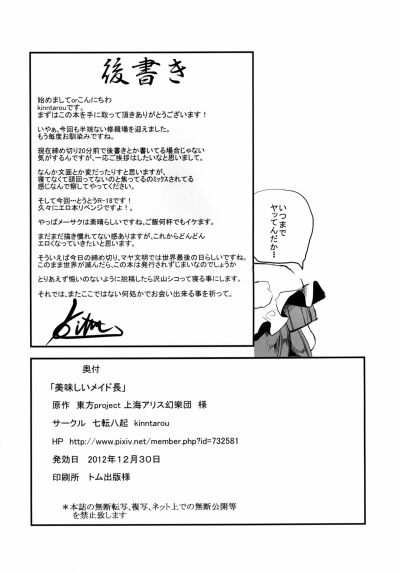 後書き
始めましてorこんにちわ
kinntarouです。
まずはこの本を手に取って頂きありがとうございます！
いやぁ、今回も半端ない修羅場を迎えました。
もう毎度お馴染みですね。
現在締め切り20分前で後書きとか書いてる場合じゃない
気がするんですが、一応ご挨拶はしたいなと思いまして。
なんか文面とか変だったりすと思いますが、
寝てなくて頭回ってないのと焦ってるのﾐｯｸｽされてる
感じなんで察してやってください。
そして今回…とうとうR-18です！
久々にエロ本リベンジですよ。！
やっぱメーサクは素晴らしいですね、ご飯何杯でもイケます。
まだまだ描き慣れてない感ありますが、これからどんどん
エロくなっていきたいと思います。
そういえば今日の締め切り、マヤ文明では世界最後の日らしいですね。
このまま世界が滅んだら、この本は発行されずじまいなのでしょうか
とりあえず悔いのないように脱稿したら沢山シコって寝る事にします。
それでは、またここではない何処かでお会い出来る事を祈って。
いつまで
ヤッてんだか…
奥付
「美味しいメイド長」
原作 東方project 上海アリス幻樂団 様
サークル 七転八起 kinntarou
HP http://www.pixiv.net/member.php?id=732581
発効日 2012年12月30日
印刷所 トム出版様
＊本誌の無断転写、複写、ネット上での無断公開等
を禁止致します